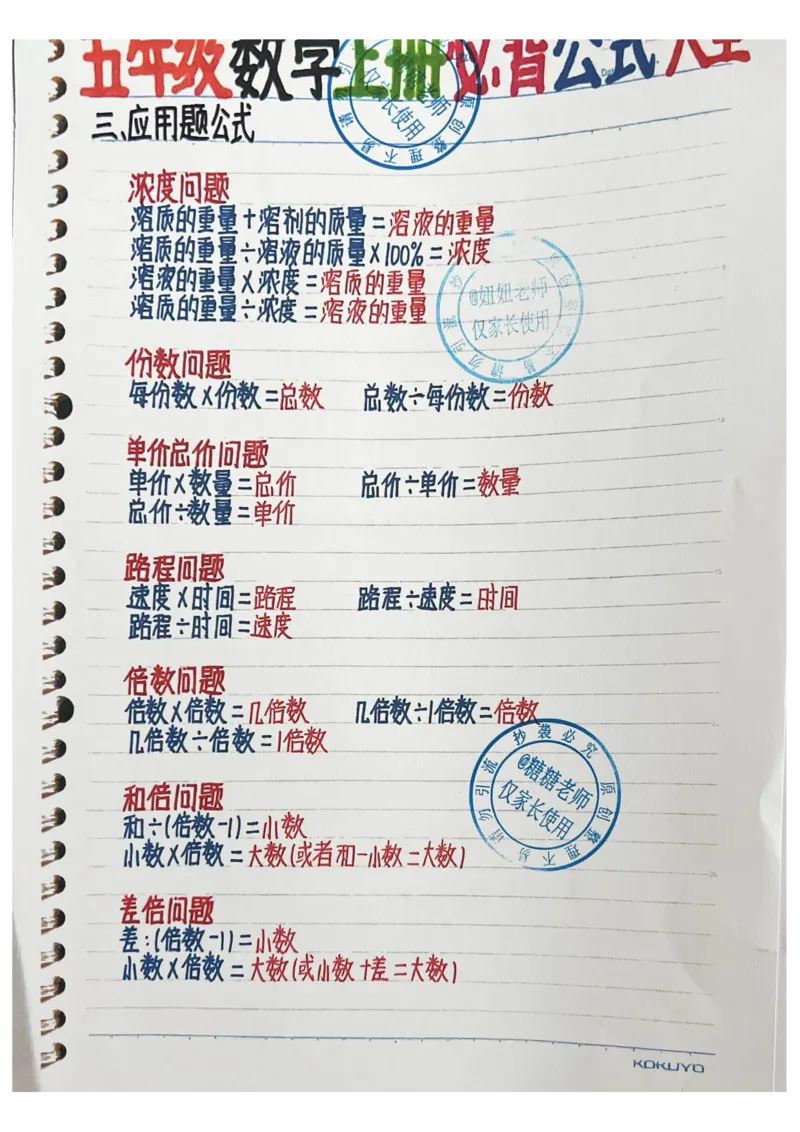 五年级数学上册必背公式大全
三、应用题公式
浓度问题
溶质的重量+溶剂的质量=溶液的重量
溶质的重量÷溶液的质量×100%=浓度
溶液的重量×浓度=溶质的重量
溶质的重量÷浓度=溶液的重量
@妞妞老师
仅家长使用
份数问题
每份数×份数=总数 总数÷每份数=份数
单价总价问题
单价×数量=总价 总价÷单价=数量
总价÷数量=单价
路程问题
速度×时间=路程 路程÷速度=时间
路程÷时间=速度
倍数问题
倍数×倍数=几倍数 几倍数÷1倍数=倍数
几倍数÷倍数=1倍数
抄袭必究 原创整理不易 请勿引流
@糖糖老师
仅家长使用
和倍问题
和÷(倍数-1)=小数
小数×倍数=大数(或者和-小数=大数)
差倍问题
差:(倍数-1)=小数
小数×倍数=大数(或小数+差=大数)
KOKUYO